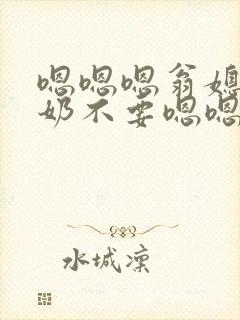 嗯嗯嗯翁媳
奶不要嗯嗯
水城凜